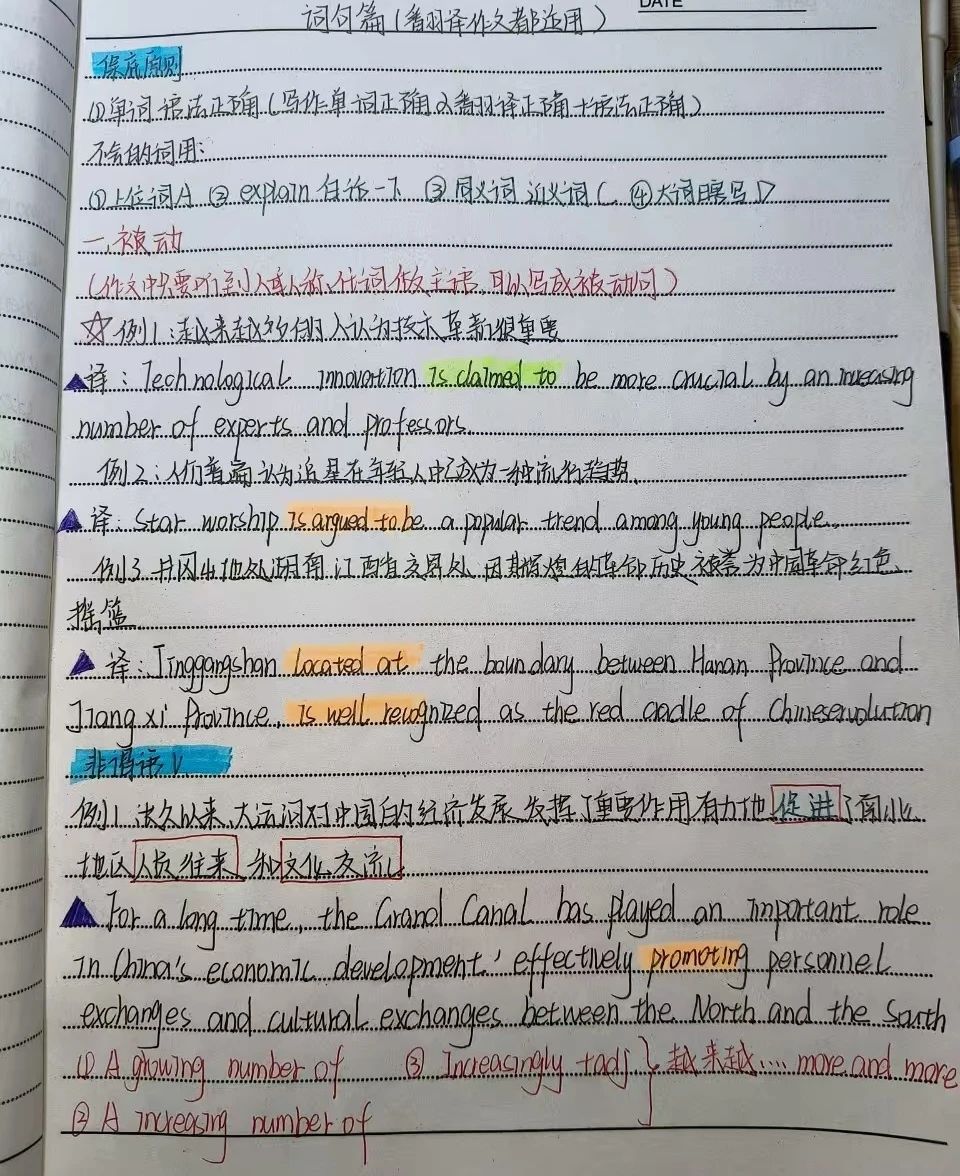 DATE
词句篇(翻译作文都适用)
保底原则
(1)单词语法正确(写作单词正确 翻译正确+语法正确)
不会的词用:
①上位词 ② explain 一下 ③同义词 近义词 ④大词瞎写
一、被动
(作文中只要 人或人称代词做主语,可以写成被动句)
☆例1:越来越多的人认为技术革新很重要
▲译:Technological innovation is claimed to be more crucial by an increasing
number of experts and professors.
例2:人们普遍认为追星在年轻人中已成为一种流行趋势.
▲译:Star worship is argued to be a popular trend among young people.
例3.井冈山地处湖南江西省交界处,因其辉煌的革命历史被誉为中国革命红色
摇篮
▲译:Jinggangshan located at the boundary between Hunan Province and
Jiangxi Province, is well recognized as the red cradle of Chinese revolution
非谓语V
例1.长久以来,大运河对中国的经济发展发挥了重要作用有力地促进了南北
地区人员往来和文化交流
▲For a long time, the Grand Canal has played an important role
in China's economic development, effectively promoting personnel
exchanges and cultural exchanges between the North and the South
① A growing number of ③ Increasingly +adj } 越来越.... more and more
② A increasing number of